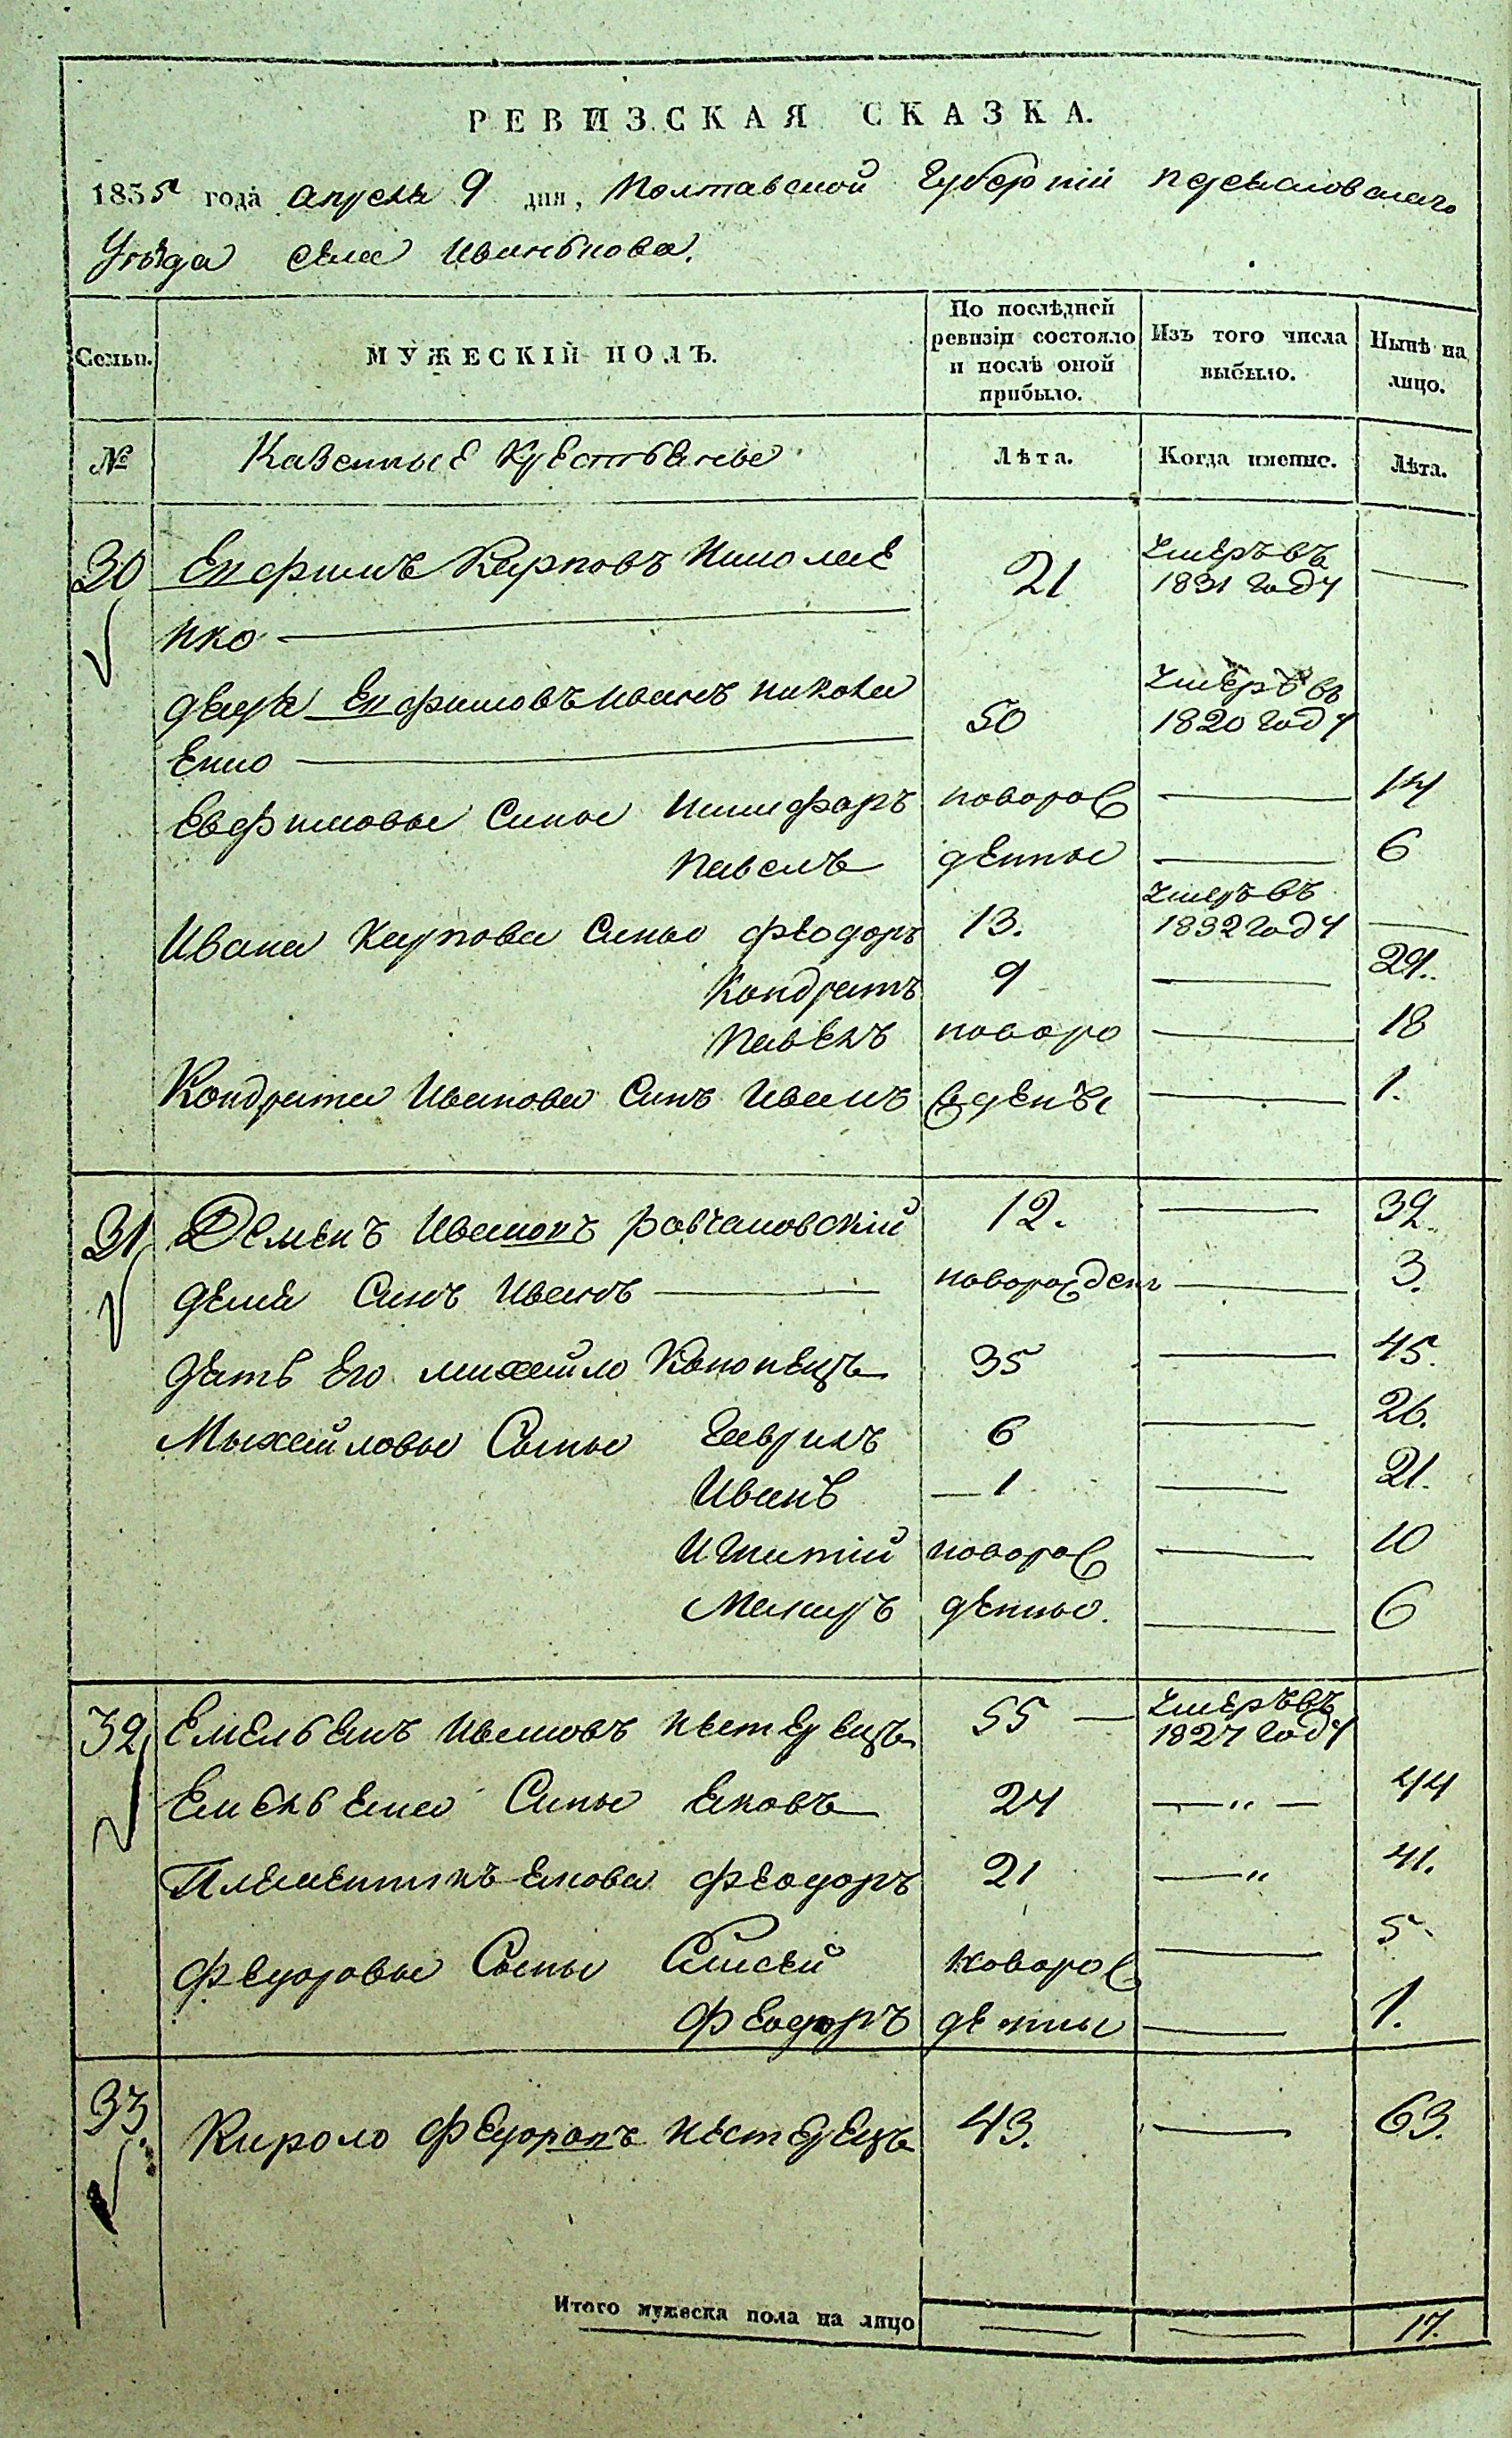 РЕВИЗСКАЯ СКАЗКА.
1835 года апреля 9 дня, Полтавской Губерніи Переяславскаго
Уѣзда села Иванькова.
Семьи.
МУЖЕСКІЙ ПОЛЪ.
По послѣдней ревизіи состояло и послѣ оной прибыло.
Изъ того числа выбыло.
Нынѣ на лицо.
№ Казенные Крестьяне Лѣта. Когда именно. Лѣта.
30 Евфимъ Карповъ Николае 21 Умеръ въ 1831 году —
нко —
Евфимовъ Иванъ Никола 50 Умеръ въ 1820 году
Енко —
Евфимовы Сины Никифоръ новорож — 14
Павелъ денные — 6
Ивана Карпова Сины Феодоръ 13. Умеръ въ 1832 году —
Кондратъ 9 — 29.
Павелъ новоро — 18
Кондрата Иванова Синъ Иванъ — 1.
31 Демьнъ Ивановъ 12. — 32.
Синъ Иванъ — новорожден — 3.
Зять Его михайло Кононецъ 35 — 45.
Мыхайловы Сыны Гаврилъ 6 — 26.
Иванъ — 1 — 21.
Игнатій новорож — 10
Макаръ денные. — 6
32 Емельянъ Ивановъ Нестерецъ 55 — Умеръ въ 1827 году
Емельяна Сины Яковъ 24 — " — 44
Племенникъ Якова Феодоръ 21 — " 41.
Федоровы Сыны Елисей новорож — 5
Феодоръ денные — 1.
33. Кирило Федоровъ Нестерецъ 43. — 63.
Итого мужеска пола на лицо — — 17.